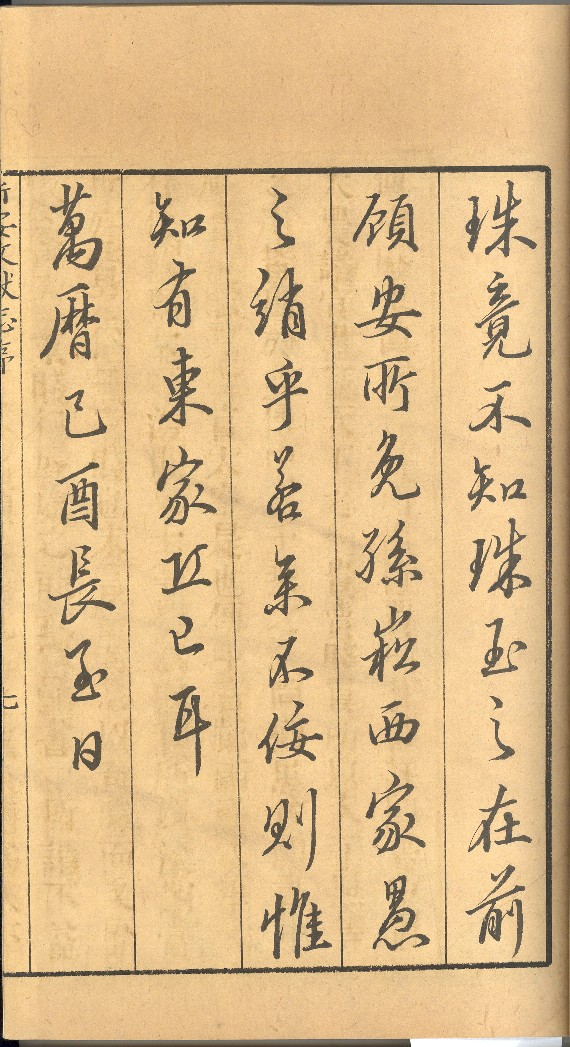 珠竟不知珠玉之在前
顧安所免孫崧西家愚
之誚乎若余不佞則惟
知有東家丘已耳
萬曆己酉長至日
新安文獻志序
七